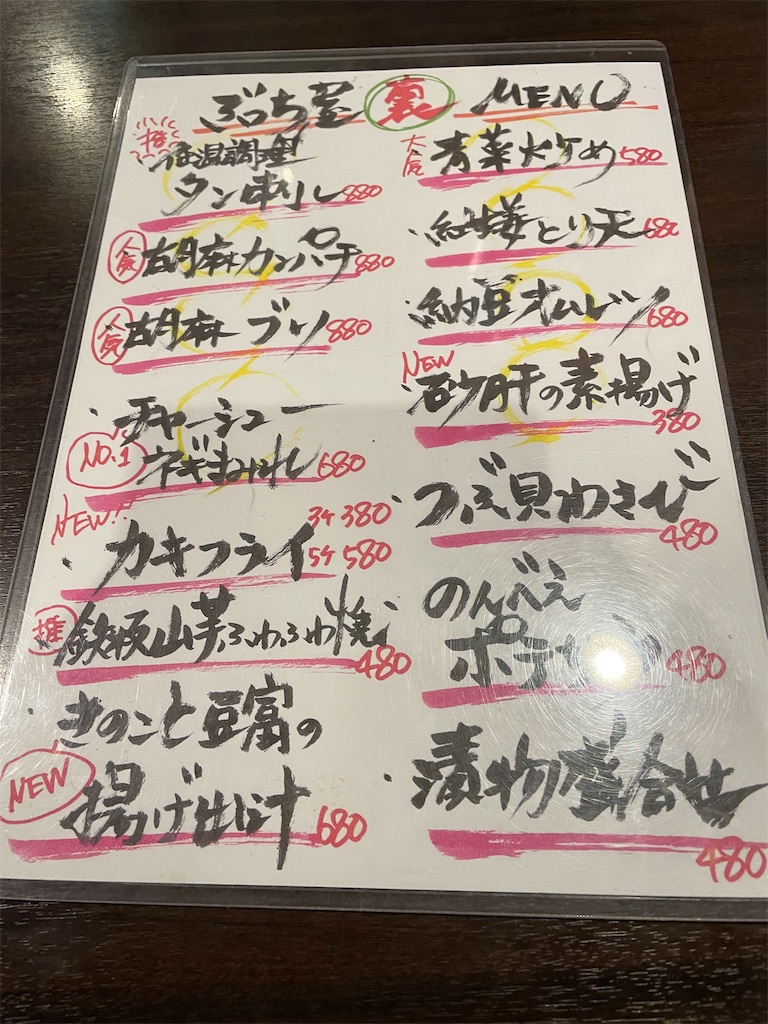 ぶっち屋 裏 MENU
推
低温調理
タン刺し 880
人気 胡麻カンパチ 880
人気 胡麻ブリ 880
チャーシュー
NO.1 ネギまみれ 680
NEW!!
カキフライ 3ケ 380
5ケ 580
推 鉄板山芋ふわふわ焼 480
きのこと豆富の
NEW 揚げ出汁 680
青菜炒め 580
紅生姜とり天 680
納豆オムレツ 680
NEW
砂肝の素揚げ
380
つぶ貝わさび
480
のんべえ
ポテサラ 480
漬物盛合せ
480